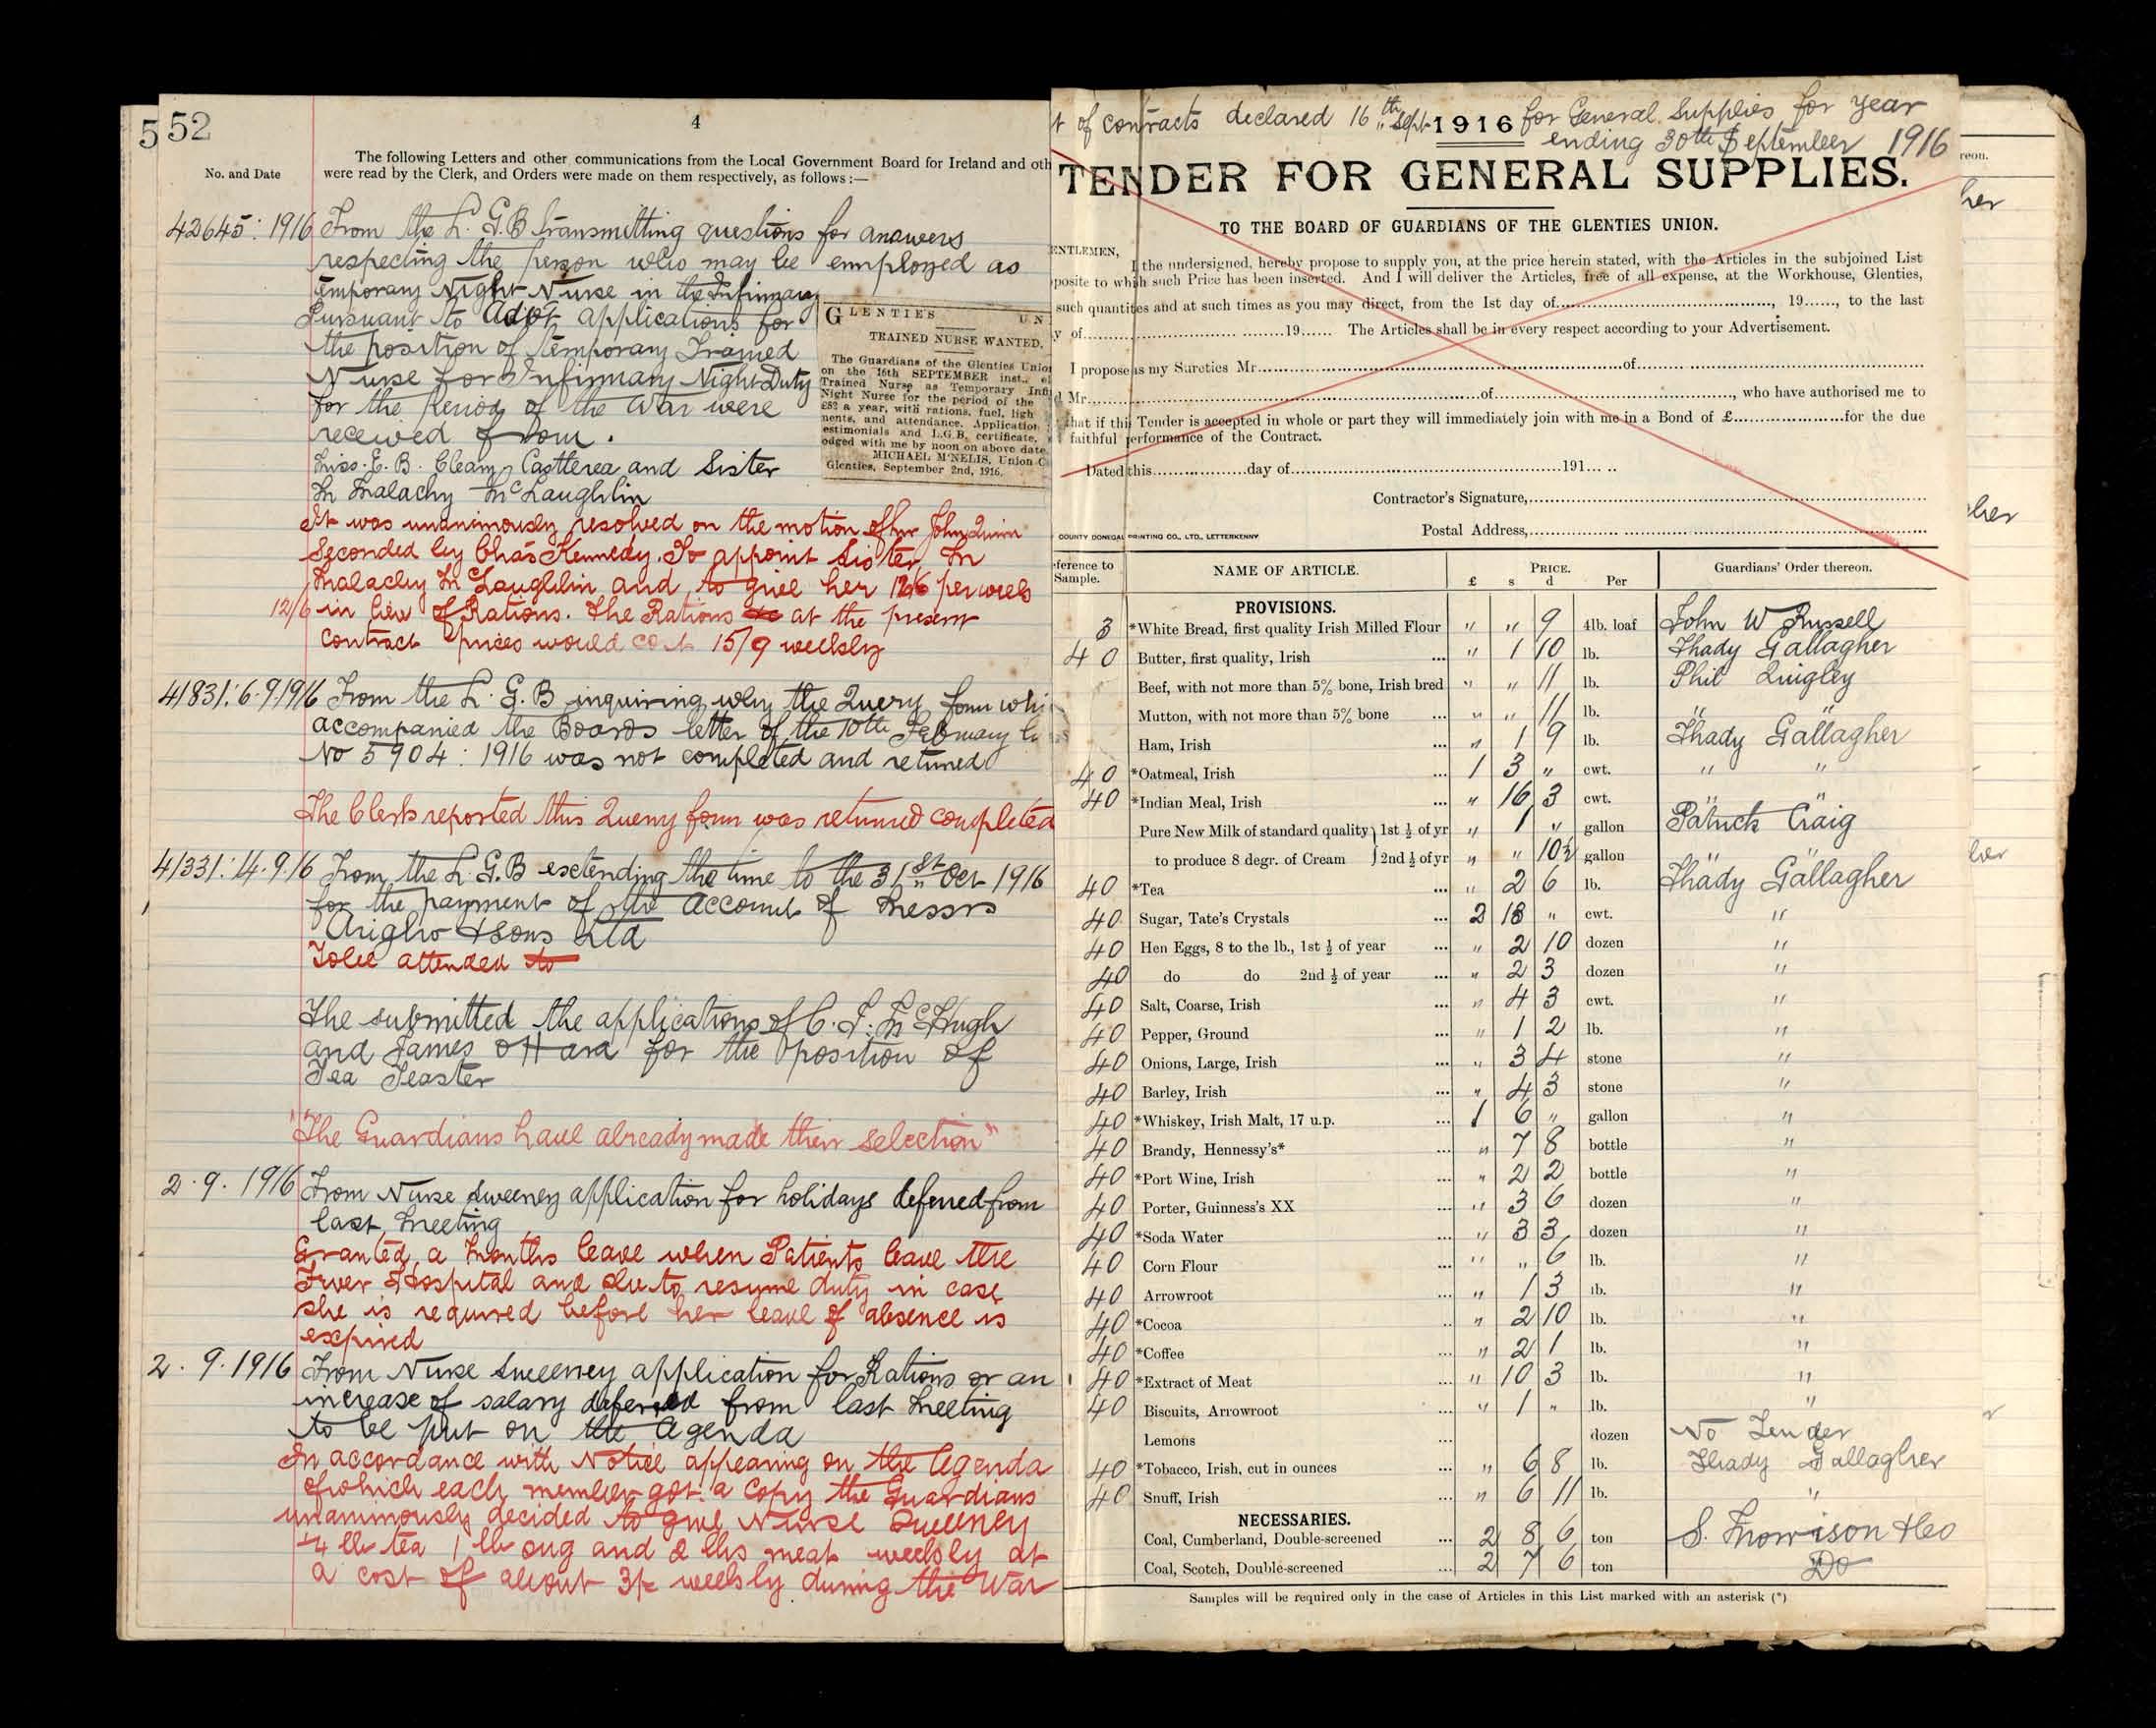 5 52
4
No. and Date
The following Letters and other communications from the Local Government Board for Ireland and oth
were read by the Clerk, and Orders were made on them respectively, as follows :—
42645: 1916 From the L. G. B transmitting questions for answers
respecting the person who may be employed as
temporary Night Nurse in the Infirmary
Pursuant to Advt applications for
the position of Temporary Trained
Nurse for Infirmary Night Duty
for the Period of the War were
received from.
Miss. E. B. Cleary Castlerea and Sister
M Malachy McLaughlin
GLENTIES UN
TRAINED NURSE WANTED.
The Guardians of the Glenties Union
on the 16th SEPTEMBER inst., el
Trained Nurse as Temporary Infi
Night Nurse for the period of the
£52 a year, with rations, fuel, ligh
ments, and attendance. Application
estimonials and L.G.B. certificate,
odged with me by noon on above date.
MICHAEL M'NELIS, Union C
Glenties, September 2nd, 1916.
It was unanimously resolved on the motion of Mr John Quinn
Seconded by Chas Kennedy. To appoint Sister M
Malachy McLaughlin and to give her 12/6 per week
12/6 in lieu of Rations. The Rations at the present
contract prices would cost 15/9 weekly
41831: 6.9.1916 From the L. G. B inquiring why the Query form whi
accompanied the Boards letter of the 10th February
No 5904: 1916 was not completed and returned
The Clerk reported this Query form was returned completed
41331: 4.9.16 From the L. G. B extending the time to the 31st Oct 1916
for the payment of the account of Messrs
Arigho & Sons Ltd
To be attended to
The submitted the applications of C. J. McHugh
and James O'Hara for the position of
Tea Teaster
"The Guardians have already made their selection"
2. 9. 1916 From Nurse Sweeney application for holidays deferred from
last Meeting
Granted a months leave when Patients leave the
Fever Hospital and she to resume duty in case
she is required before her leave of absence is
expired
2. 9. 1916 From Nurse Sweeney application for Rations or an
increase of salary deferred from last Meeting
to be put on the Agenda
In accordance with Notice appearing on the Agenda
of which each member got a copy the Guardians
unanimously decided to give Nurse Sweeney
1/4 lb tea 1 lb sug and 2 lbs meat weekly at
a cost of about weekly during the War
t of contracts declared 16th Sept 1916 for General Supplies for year
ending 30th September 1916
TENDER FOR GENERAL SUPPLIES.
TO THE BOARD OF GUARDIANS OF THE GLENTIES UNION.
ENTLEMEN,
I the undersigned, hereby propose to supply you, at the price herein stated, with the Articles in the subjoined List
posite to which such Price has been inserted. And I will deliver the Articles, free of all expense, at the Workhouse, Glenties,
such quantities and at such times as you may direct, from the 1st day of..............., 19......, to the last
y of...............19...... The Articles shall be in every respect according to your Advertisement.
I propose as my Sureties Mr...............of...............
d Mr...............of..............., who have authorised me to
that if this Tender is accepted in whole or part they will immediately join with me in a Bond of £...............for the due
faithful performance of the Contract.
Dated this...............day of...............191......
Contractor's Signature,...............
Postal Address,...............
COUNTY DONEGAL PRINTING CO., LTD., LETTERKENNY
eference to Sample. NAME OF ARTICLE. PRICE. £ s d Per Guardians' Order thereon.
PROVISIONS.
3 *White Bread, first quality Irish Milled Flour " " 9 4lb. loaf John W Russell
40 Butter, first quality, Irish ... " 1 10 lb. Thady Gallagher
Beef, with not more than 5% bone, Irish bred " " 11 lb. Phil Quigley
Mutton, with not more than 5% bone ... " " 11 lb. " "
Ham, Irish ... " 1 9 lb. Thady Gallagher
40 *Oatmeal, Irish ... 1 3 " cwt. " "
40 *Indian Meal, Irish ... " 16 3 cwt. " "
Pure New Milk of standard quality 1st ½ of yr " 1 " gallon Patrick Craig
to produce 8 degr. of Cream 2nd ½ of yr " " 10½ gallon " "
40 *Tea ... " 2 6 lb. Thady Gallagher
40 Sugar, Tate's Crystals ... 2 18 " cwt. "
40 Hen Eggs, 8 to the lb., 1st ½ of year ... " 2 10 dozen "
40 do do 2nd ½ of year ... " 2 3 dozen "
40 Salt, Coarse, Irish ... " 4 3 cwt. "
40 Pepper, Ground ... " 1 2 lb. "
40 Onions, Large, Irish ... " 3 4 stone "
40 Barley, Irish ... " 4 3 stone "
40 *Whiskey, Irish Malt, 17 u.p. ... 1 6 " gallon "
40 Brandy, Hennessy's* ... " 7 8 bottle "
40 *Port Wine, Irish ... " 2 2 bottle "
40 Porter, Guinness's XX ... " 3 6 dozen "
40 *Soda Water ... " 3 3 dozen "
40 Corn Flour ... " " 6 lb. "
40 Arrowroot ... " 1 3 lb. "
40 *Cocoa .. " 2 10 lb. "
40 *Coffee ... " 2 1 lb. "
40 *Extract of Meat ... " 10 3 lb. "
40 Biscuits, Arrowroot ... " 1 " lb. "
Lemons ... dozen No Tender
40 *Tobacco, Irish, cut in ounces ... " 6 8 lb. Thady Gallagher
40 Snuff, Irish ... " 6 11 lb. "
NECESSARIES.
Coal, Cumberland, Double-screened ... 2 8 6 ton S. Morrison & Co
Coal, Scotch, Double-screened ... 2 7 6 ton Do
Samples will be required only in the case of Articles in this List marked with an asterisk (*)
reon.
her
her
her